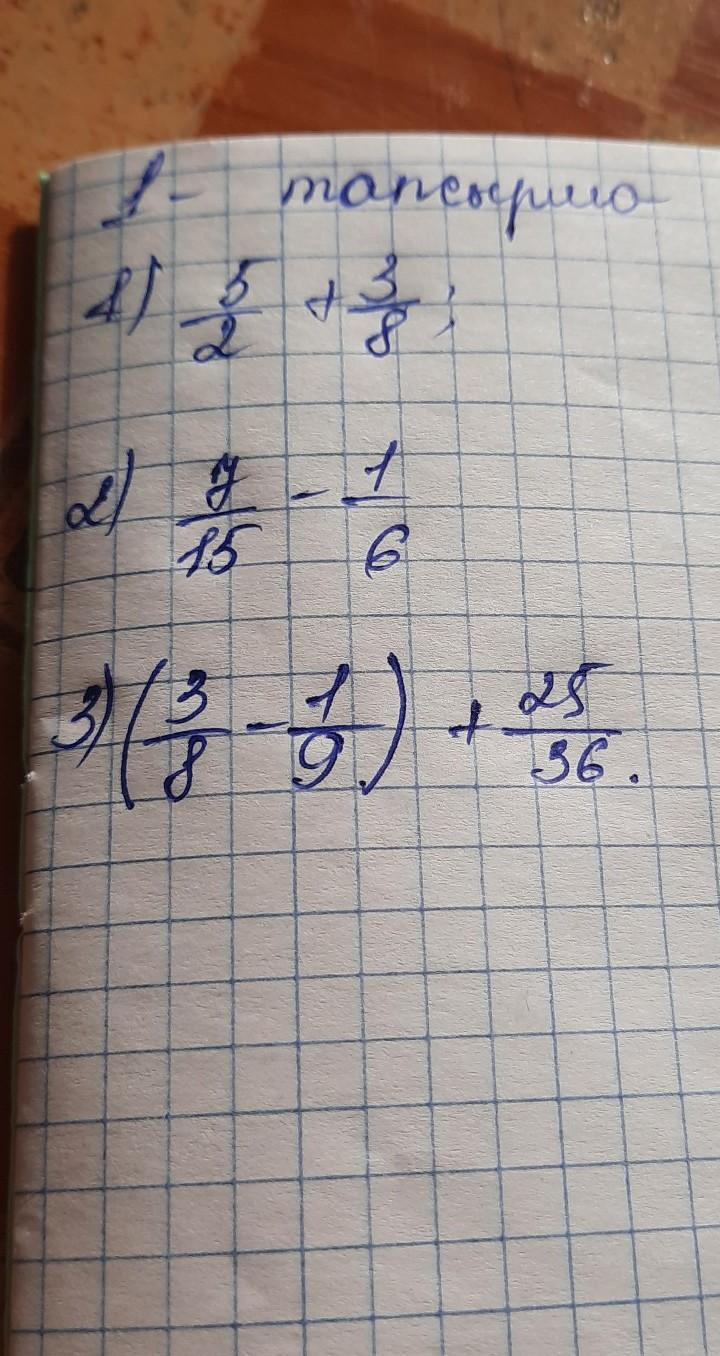 1- тапсырма
1) 5/2 + 3/8;
2) 7/15 - 1/6
3) (3/8 - 1/9) + 25/36.